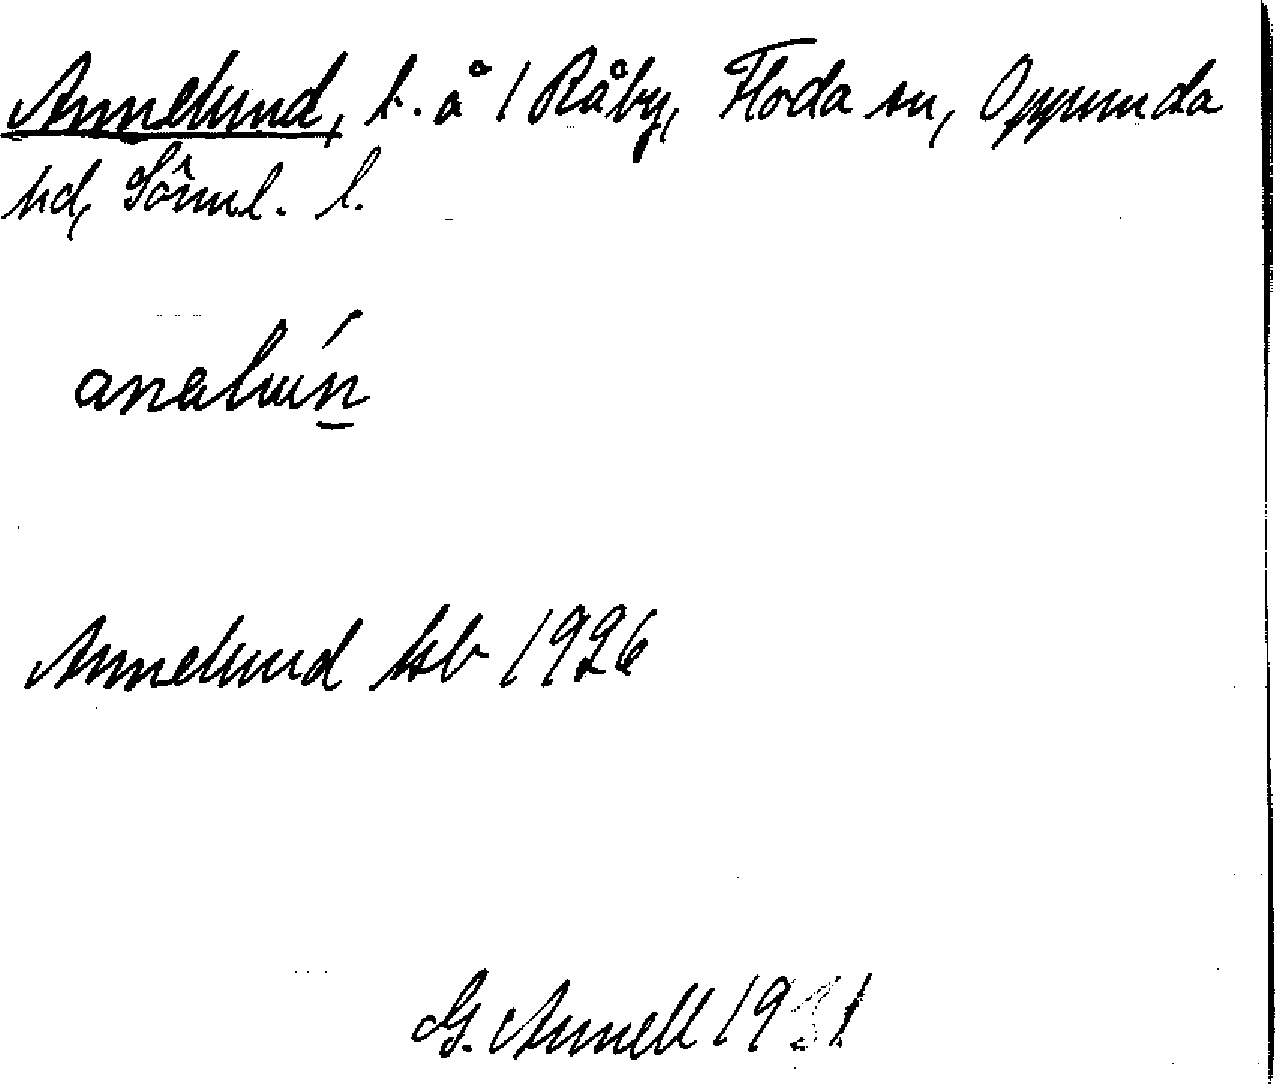 Annelund, t. å 1 Råby, Floda sn, Oppunda
hd, Sörml. l.
anelún
Annelund kb 1926
G. Annell 1931